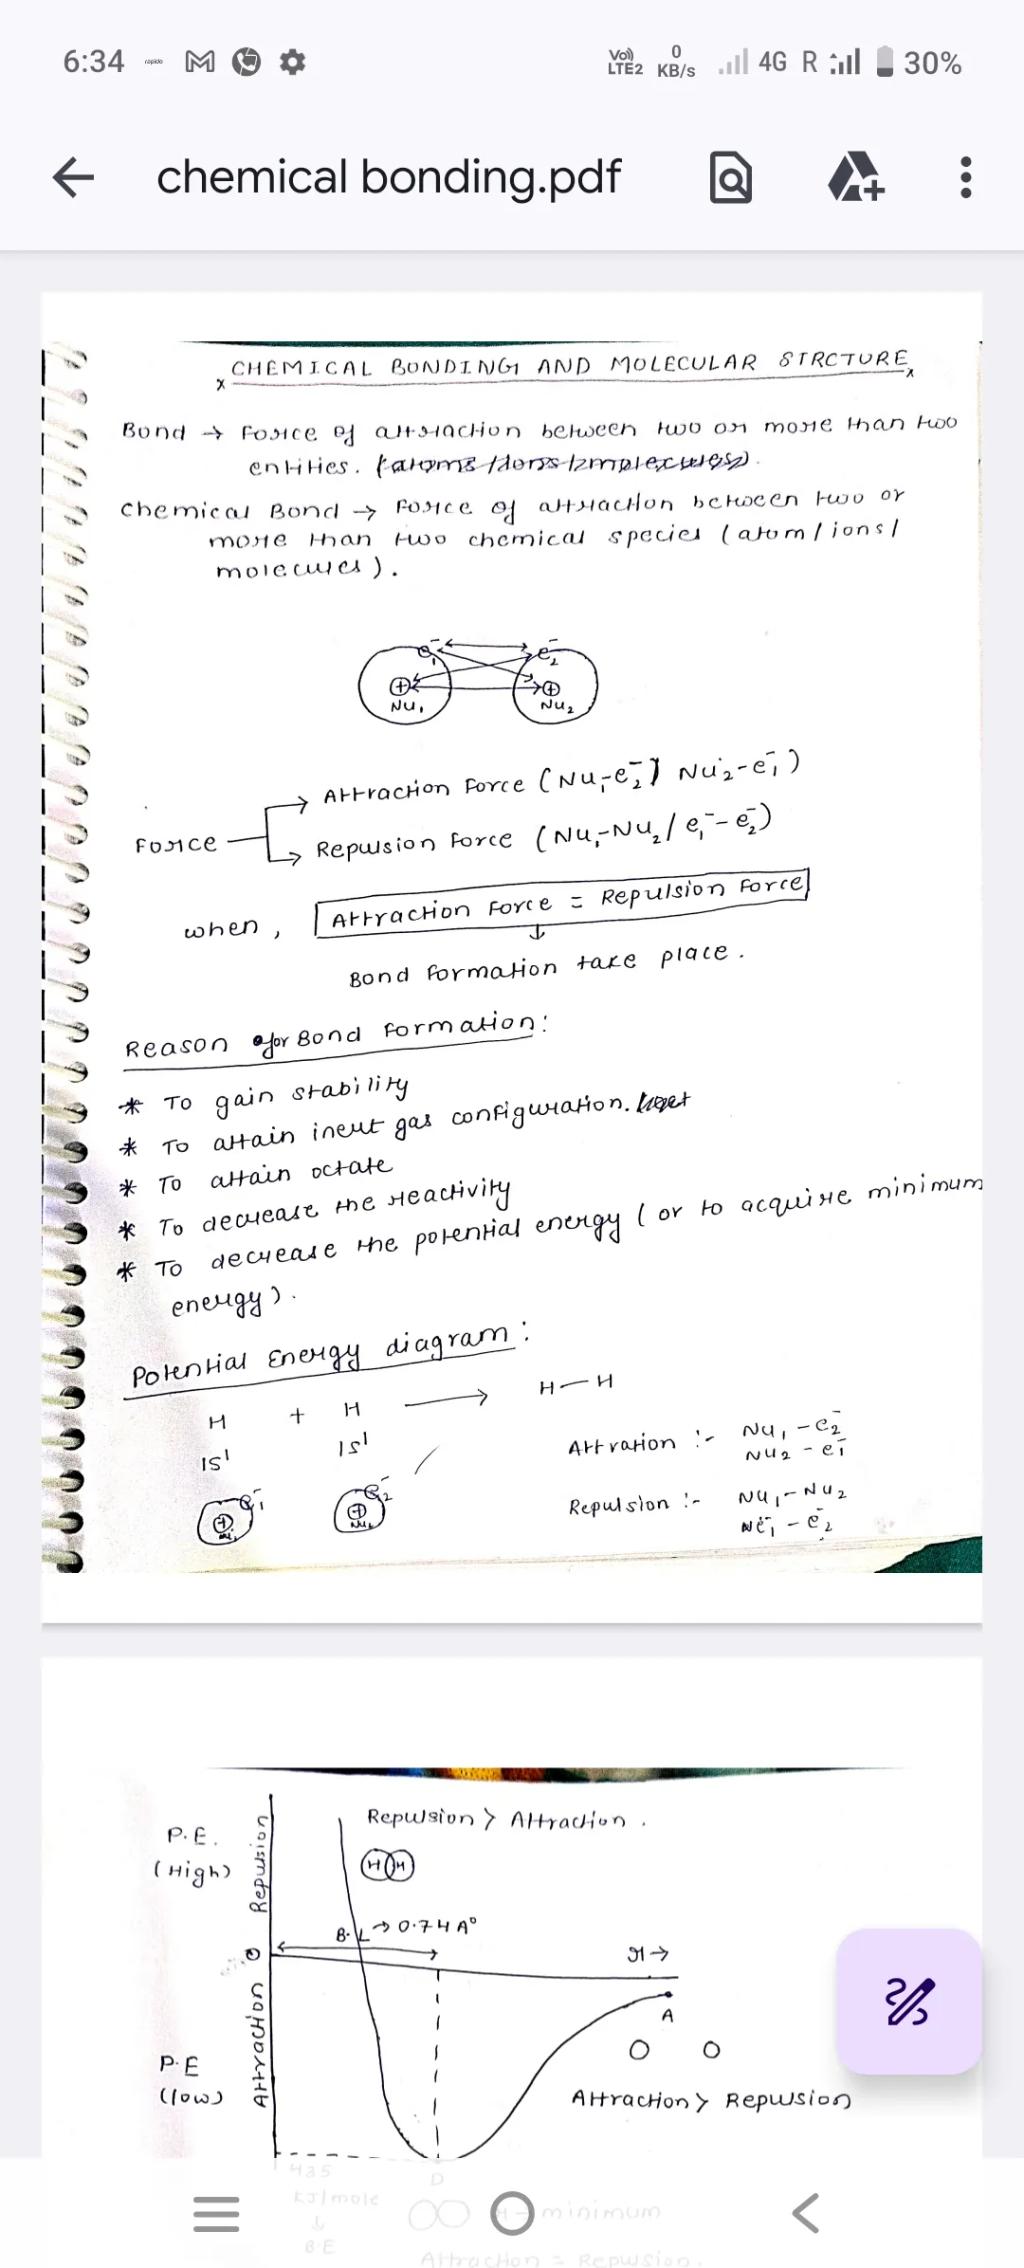 6:34 rapido Vo) LTE2 0 KB/s 4G R 30%
chemical bonding.pdf
CHEMICAL BONDING AND MOLECULAR STRCTURE
Bond → Force of attraction between two or more than two
entities.
Chemical Bond → Force of attraction between two or
more than two chemical species (atom/ions/
molecules).
e₁⁻ e₂⁻
Nu₁ Nu₂
Attraction Force (Nu₁-e₂⁻ / Nu₂-e₁⁻)
Force
Repulsion Force (Nu₁-Nu₂/e₁⁻-e₂⁻)
when, Attraction Force = Repulsion Force
↓
Bond formation take place.
Reason for Bond formation:
* To gain stability
* To attain inert gas configuration.
* To attain octate
* To decrease the reactivity
* To decrease the potential energy (or to acquire minimum
energy).
Potential Energy diagram:
H + H → H—H
1s¹ 1s¹
Attration :- Nu₁-e₂⁻
Nu₂-e₁⁻
e₁⁻ e₂⁻
Repulsion :- Nu₁-Nu₂
e₁⁻-e₂⁻
Repulsion > Attraction.
P.E.
(High)
Repulsion
H H
B.L → 0.74 A°
0
r →
A
Attraction
P.E
(low)
Attraction > Repulsion
435
KJ/mole
↓
B.E
D
minimum
Attraction = Repulsion.